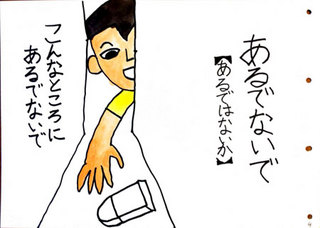 あるでないで
【あるではないか】
こんなところに
あるでないで